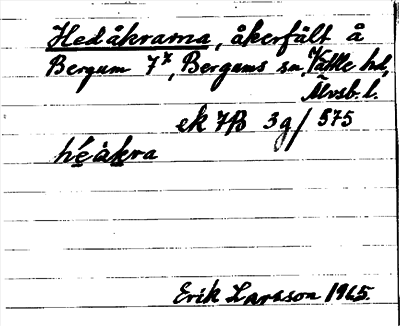 Hedåkrarna, åkerfält å
Bergum 7², Bergums sn, Vättle hd,
Älvsb. l.
ek 7B 3g/ 575
hé̱àḵra
Erik Larsson 1965.